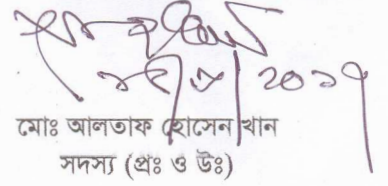 ২০১৭
মোঃ আলতাফ হোসেন খান
সদস্য (প্রঃ ও উঃ)